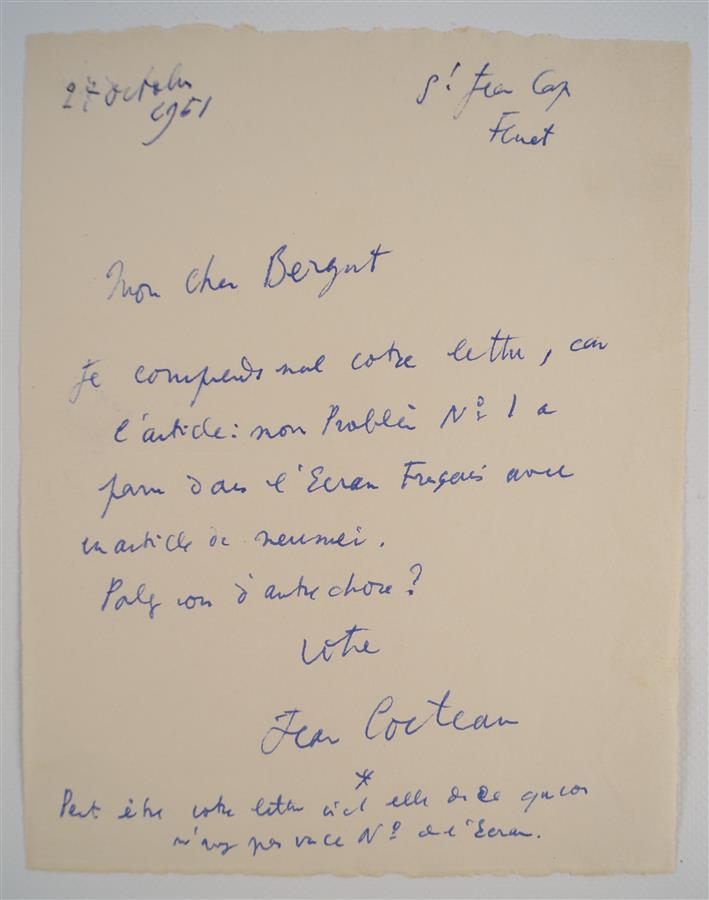 27 octobre
1951
St Jean Cap
Ferrat
Mon cher Bergut
Je comprends mal votre lettre, car
l'article: mon Problème N° 1 a
paru dans l'Ecran Français avec
un article de
Parlez vous d'autre chose?
votre
Jean Cocteau
*
Peut être votre lettre elle de ce que vous
n'avez pas vu ce N° de l'Ecran.